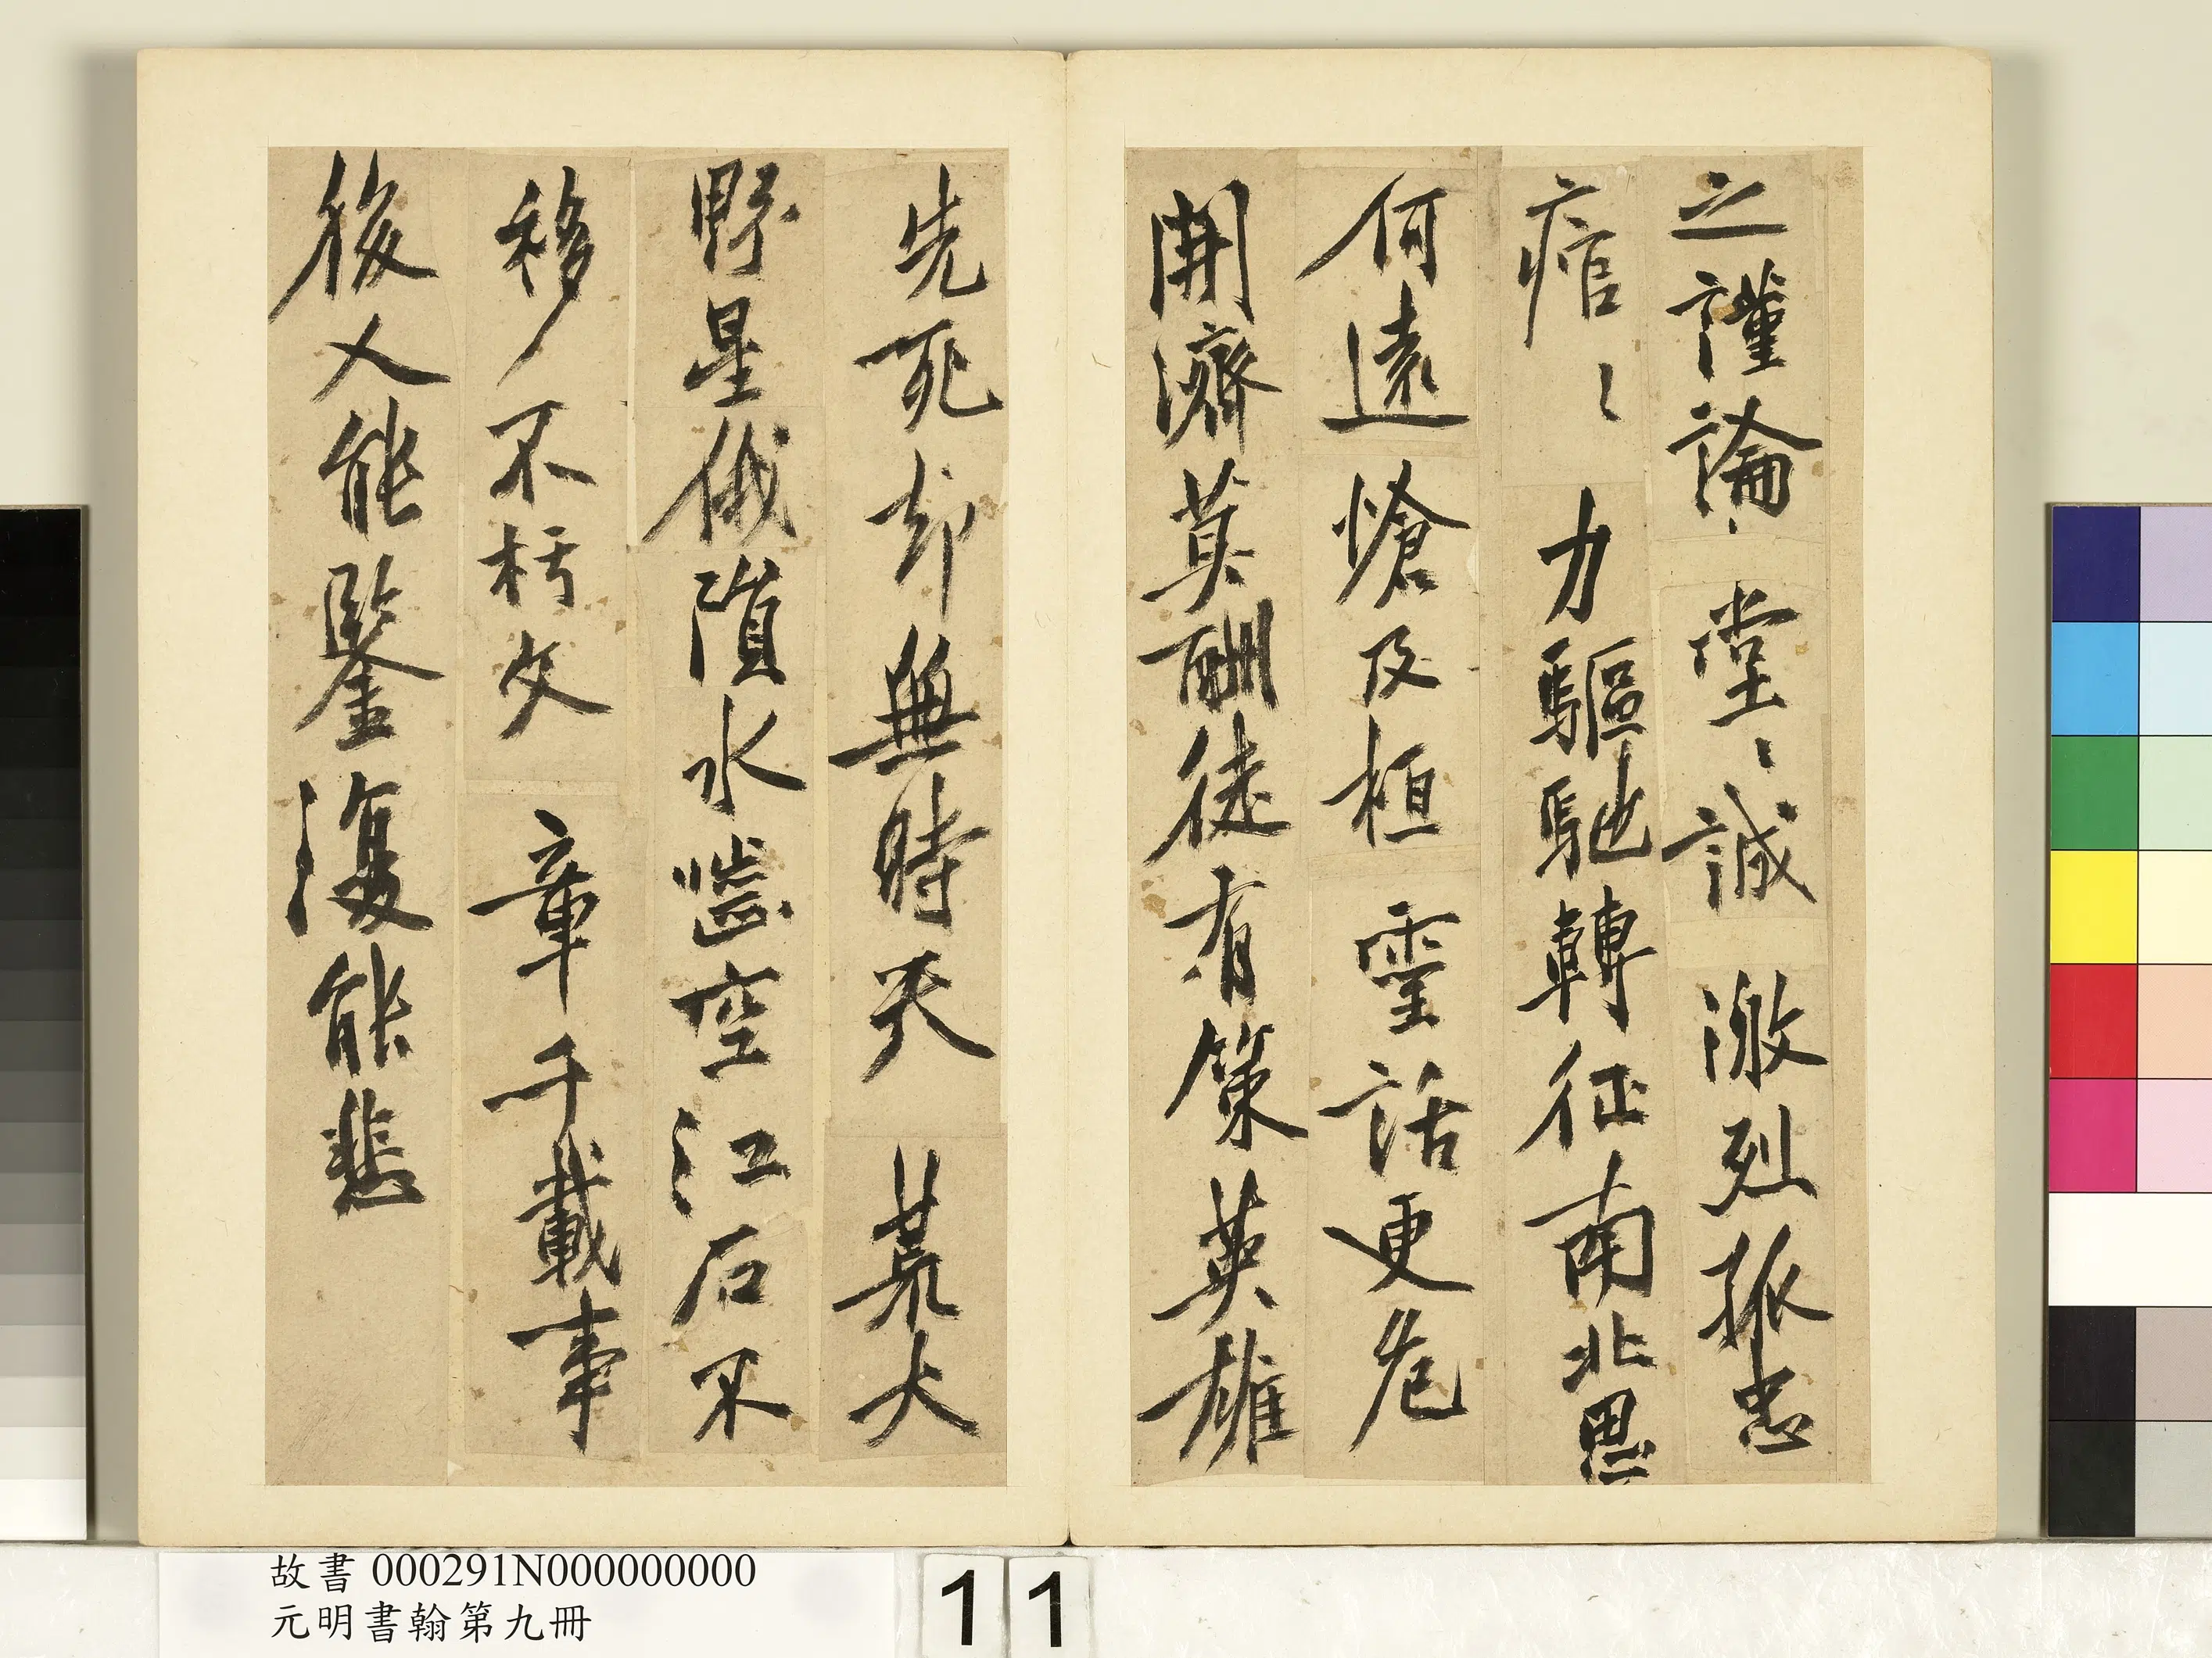 之謹論堂〻誠激烈孤忠
痯〻力驅馳轉征南北思
何遠愴及桓靈話更危
開濟莫酬徒有策英雄
先死却無時天荒大
野星俄隕水嚙空江石不
移不朽文章千載事
後人能鑒復能悲
故書 000291N000000000
元明書翰第九冊
11